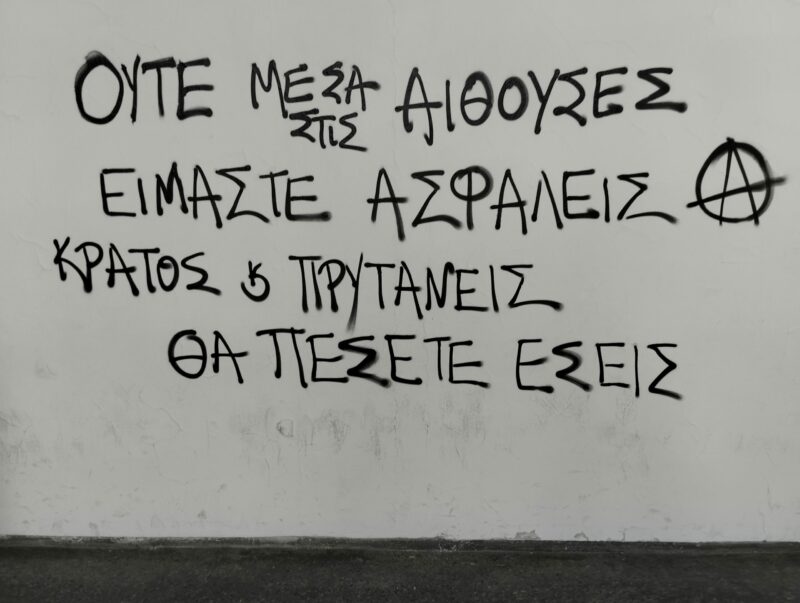 ΟΥΤΕ ΜΕΣΑ ΣΤΙΣ ΑΙΘΟΥΣΕΣ
ΕΙΜΑΣΤΕ ΑΣΦΑΛΕΙΣ Ⓐ
ΚΡΑΤΟΣ & ΠΡΥΤΑΝΕΙΣ
ΘΑ ΠΕΣΕΤΕ ΕΣΕΙΣ